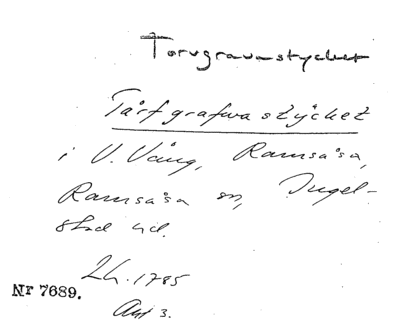 Torvgravastycket
Tårfgrafwastÿcket
i V. Vång, Ramsåsa,
Ramsåsa sn, Ingel-
stad hd.
Lh. 1785
Nr 7689.
Akt 3.